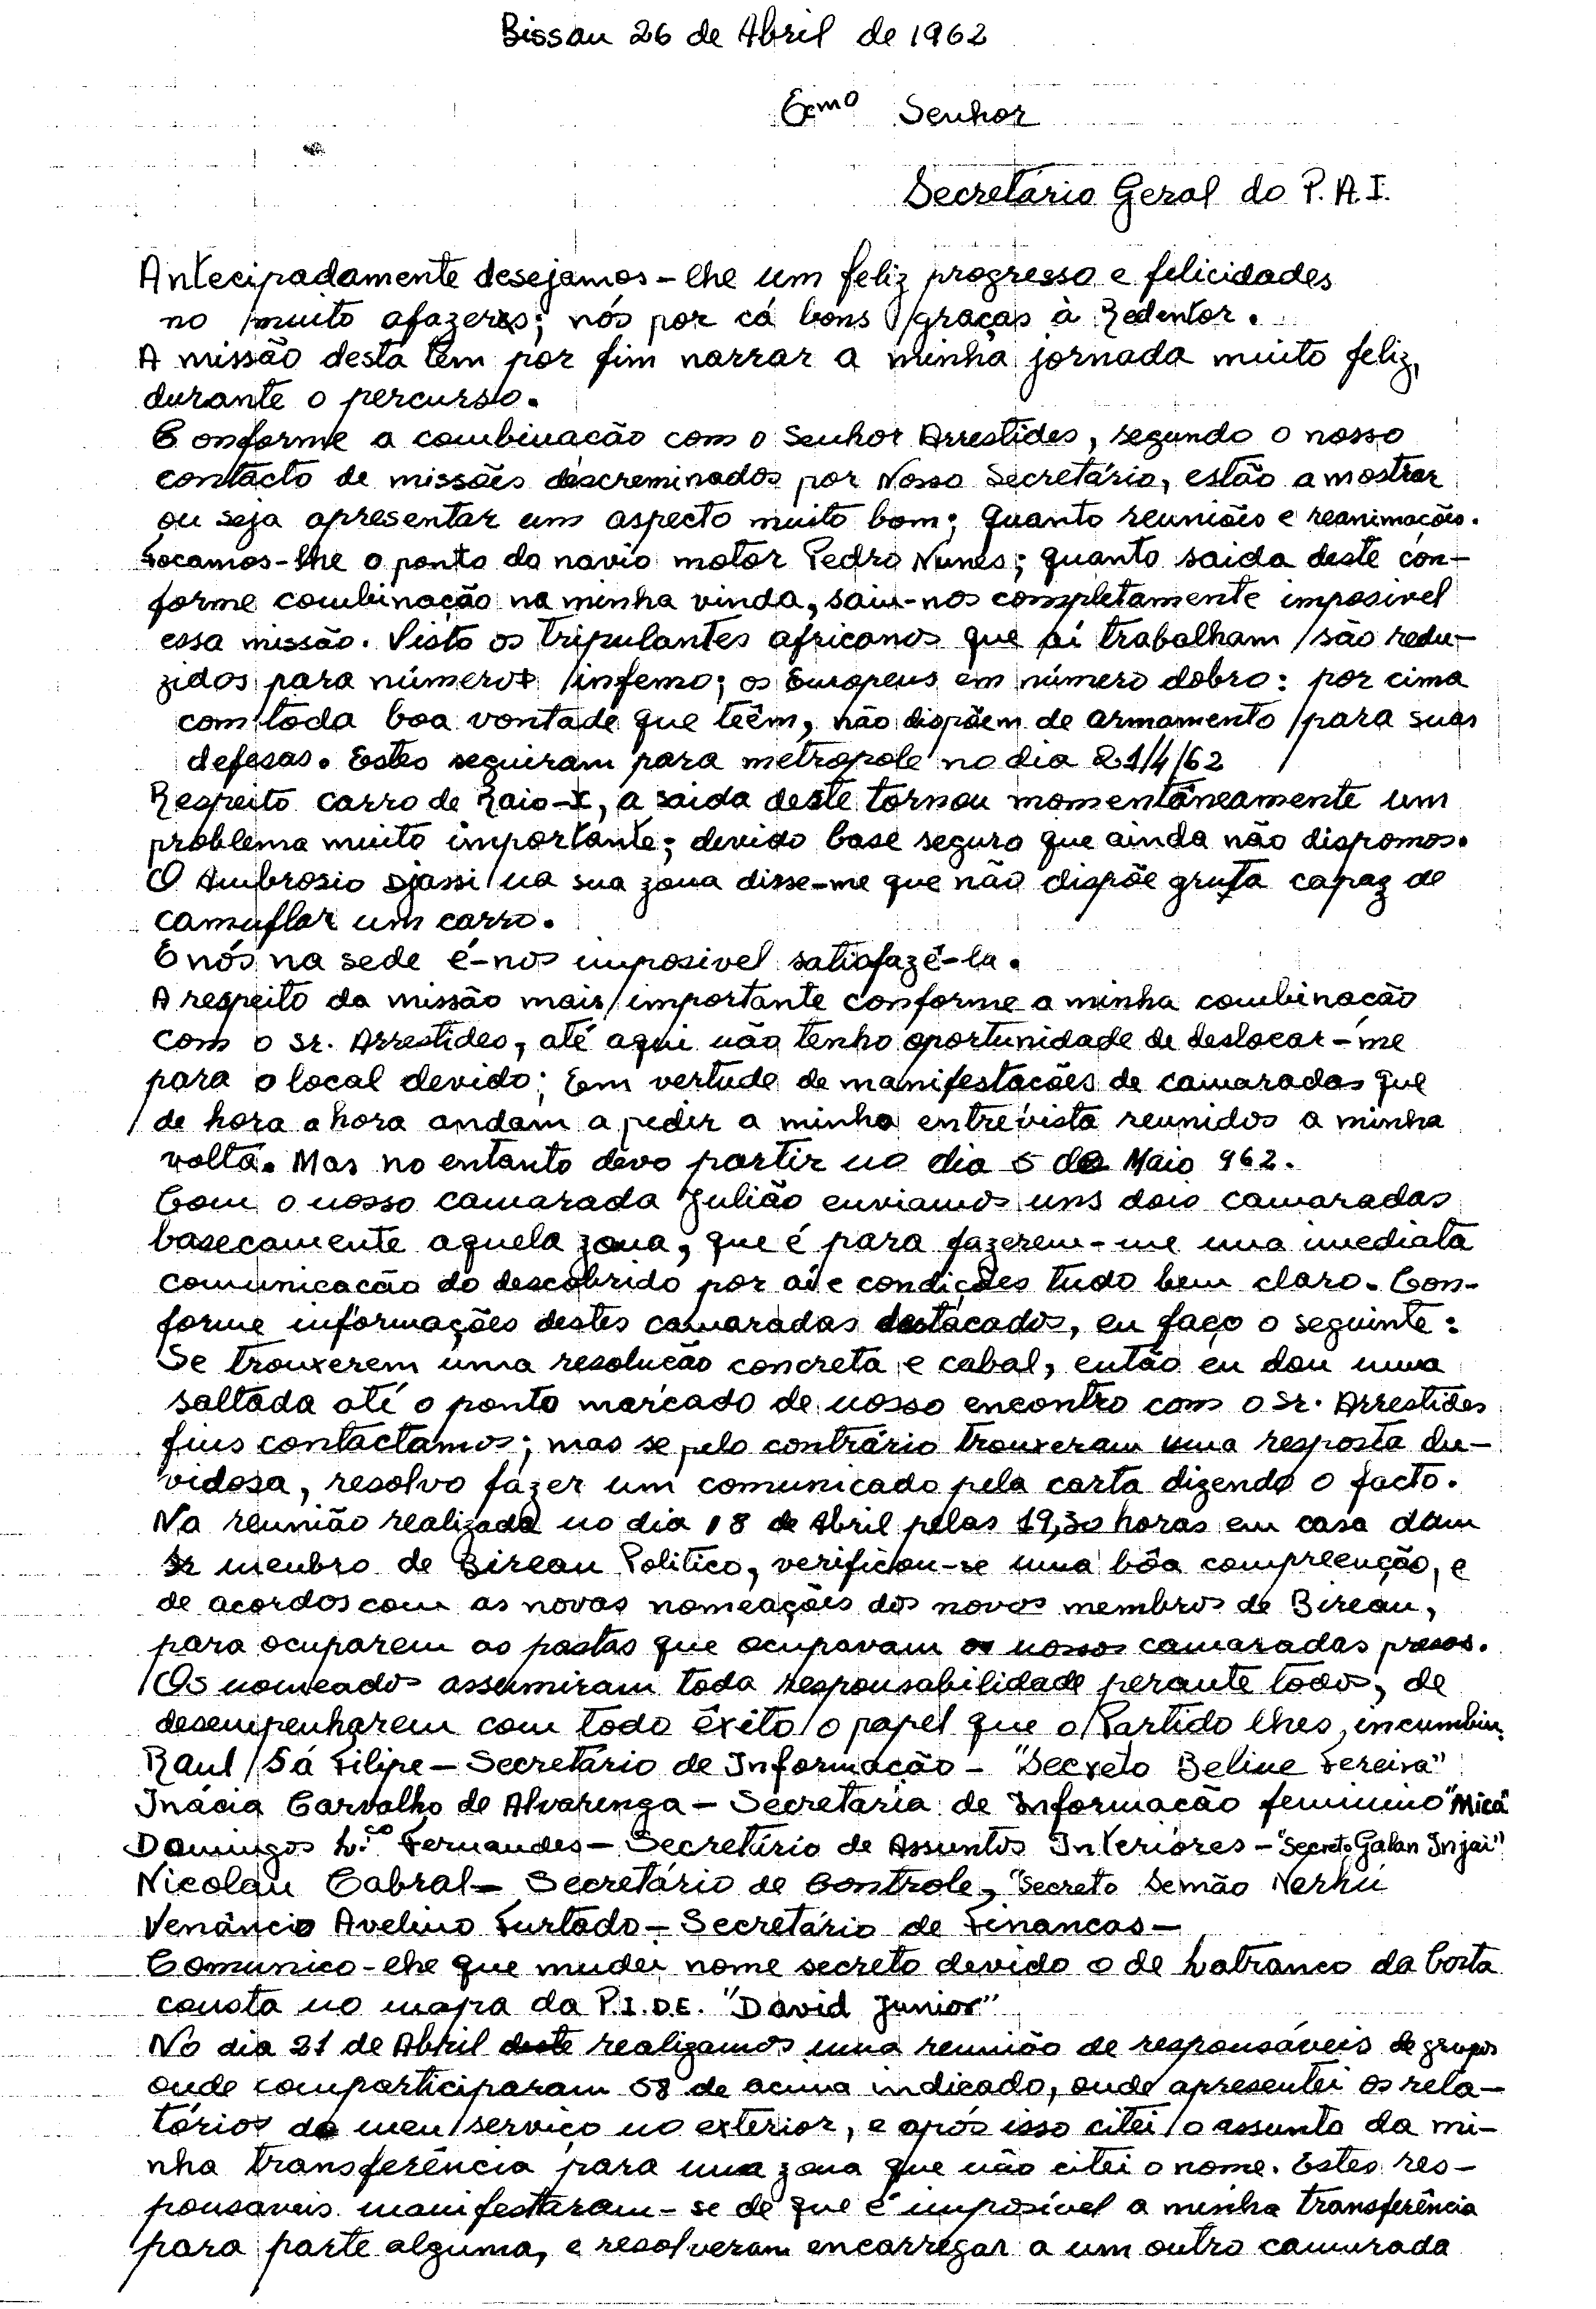 Bissau 26 de Abril de 1962
Ecmo Senhor
Secretário Geral do P.A.I.
Antecipadamente desejamos-lhe um feliz progresso e felicidades
no muito afazeres; nós por cá bons graças à Redentor.
A missão desta têm por fim narrar a minha jornada muito feliz,
durante o percurso.
Conforme a combinacão com o Senhor Arrestides, segundo o nosso
contacto de missões descreminados por Nosso Secretário, estão a mostrar
ou seja apresentar um aspecto muito bom; quanto reuniões e reanimacões.
Focamos-lhe o ponto do navio motor Pedro Nunes; quanto saida deste con-
forme combinação na minha vinda, saiu-nos completamente imposivel
essa missão. Visto os tripulantes africanos que aí trabalham são redu-
zidos para número infemo; os Europeus em número dobro: por cima
com toda boa vontade que teêm, não dispõem de armamento para suas
defesas. Estes seguiram para metrópole no dia 21/4/62
Respeito carro de Raio-X, a saida deste tornou momentâneamente um
problema muito importante; devido base seguro que ainda não dispomos.
O Ambrosio Djassi na sua zona disse-me que não dispõe gruta capaz de
camuflar um carro.
E nós na sede é-nos imposivel satisfazê-la.
A respeito da missão mais importante conforme a minha combinacão
com o Sr. Arrestides, até aqui não tenho oportunidade de deslocar-me
para o local devido; Em vertude de manifestacões de camaradas que
de hora a hora andam a pedir a minha entrevista reunidos a minha
volta. Mas no entanto devo partir no dia 5 de Maio 962.
Com o nosso camarada Julião enviamos uns dois camaradas
basecamente aquela zona, que é para fazerem-me uma imediata
comunicacão do descobrido por aí e condições tudo bem claro. Con-
forme informações destes camaradas destacados, eu faço o seguinte:
Se trouxerem uma resolucão concreta e cabal, então eu dou uma
saltada até o ponto marcado de nosso encontro com o Sr. Arrestides
fins contactamos; mas se pelo contrário trouxeram uma resposta du-
vidosa, resolvo fazer um comunicado pela carta dizendo o facto.
Na reunião realizada no dia 18 de Abril pelas 19,30 horas em casa dum
membro de Bireau Politico, verificou-se uma bôa compreenção, e
de acordos com as novas nomeações dos novos membros de Bireau,
para ocuparem as pastas que ocupavam os nossos camaradas presos.
Os nomeados assumiram toda responsabilidade perante todos, de
desempenharem com todo êxito o papel que o Partido lhes incumbiu.
Raul Sá Filipe - Secretário de Informação - "Secreto Beline Fereira"
Inácia Carvalho de Alvarenga - Secretária de Informacão feminino "Mica"
Domingos L.ço Fernandes - Secretário de Assuntos Interiores - "Secreto Galan Injai"
Nicolau Cabral - Secretário de Controle, "Secreto Semão Nerhú
Venâncio Avelino Furtado - Secretário de Financas -
Comunico-lhe que mudei nome secreto devido o de Latranco da Costa
consta no mapa da P.I.D.E. "David Junior"
No dia 21 de Abril deste realizamos uma reunião de responsáveis de grupos
onde comparticiparam 58 de acima indicado, onde apresentei os rela-
tórios do meu serviço no exterior, e após isso citei o assunto da mi-
nha transferência para uma zona que não citei o nome. Estes res-
ponsaveis manifestaram-se de que é imposível a minha transferência
para parte alguma, e resolveram encarregar a um outro camarada